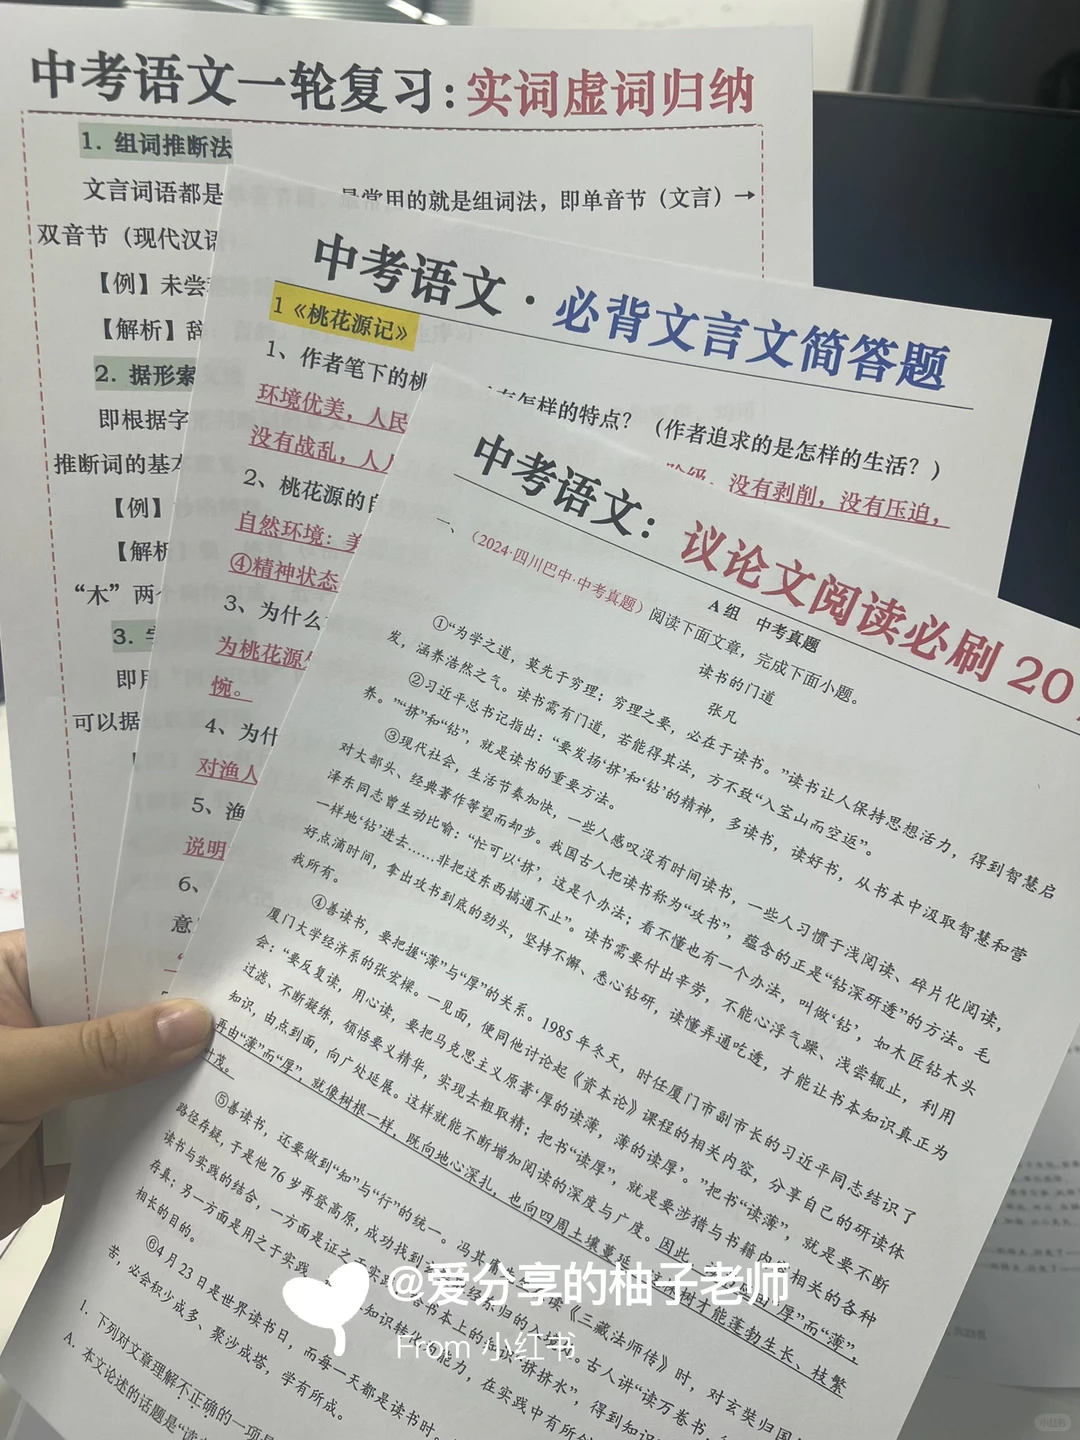 中考语文一轮复习：实词虚词归纳
1. 组词推断法
文言词语都是
最常用的就是组词法，即单音节（文言）→
双音节（现代汉语
【例】未尝
【解析】辞
2. 据形索
即根据字
推断词的基本
【例】
【解析
“木”两
3.
即用
可以据
中考语文·必背文言文简答题
1《桃花源记》
1、作者笔下的桃
有怎样的特点？（作者追求的是怎样的生活？）
环境优美，人民
没有剥削，没有压迫，
没有战乱，人人
2、桃花源的自
自然环境：美
④精神状态
3、为什么
为桃花源
惋。
4、为什
对渔人
5、渔
说明
6、
意
中考语文：议论文阅读必刷 20
A 组 中考真题
一、（2024·四川巴中·中考真题）阅读下面文章，完成下面小题。
读书的门道
张凡
①“为学之道，莫先于穷理；穷理之要，必在于读书。”读书让人保持思想活力，得到智慧启
发，涵养浩然之气。读书需有门道，若能得其法，方不致“入宝山而空返”。
②习近平总书记指出：“要发扬‘挤’和‘钻’的精神，多读书，读好书，从书本中汲取智慧和营
养。”“挤”和“钻”，就是读书的重要方法。
③现代社会，生活节奏加快，一些人感叹没有时间读书，一些人习惯于浅阅读、碎片化阅读，
对大部头、经典著作等望而却步。我国古人把读书称为“攻书”，蕴含的正是“钻深研透”的方法。毛
泽东同志曾生动比喻：“忙可以‘挤’，这是个办法；看不懂也有一个办法，叫做‘钻’，如木匠钻木头
一样地‘钻’进去……非把这东西搞通不止”。读书需要付出辛劳，不能心浮气躁、浅尝辄止，利用
好点滴时间，拿出攻书到底的劲头，坚持不懈、悉心钻研，读懂弄通吃透，才能让书本知识真正为
我所有。
④善读书，要把握“薄”与“厚”的关系。1985 年冬天，时任厦门市副市长的习近平同志结识了
厦门大学经济系的张宏樑。一见面，便同他讨论起《资本论》课程的相关内容，分享自己的研读体
会：“要反复读，用心读，要把马克思主义原著‘厚的读薄，薄的读厚’。”把书“读薄”，就是要不断
过滤、不断凝练，领悟要义精华，实现去粗取精；把书“读厚”，就是要涉猎与书籍内容相关的各种
知识，由点到面，向广处延展。这样就能不断增加阅读的深度与广度。因此，
由“厚”而“薄”，
再由“薄”而“厚”，就像树根一样，既向地心深扎，也向四周土壤蔓延，
树才能蓬勃生长、枝繁
叶茂。
⑤善读书，还要做到“知”与“行”的统一。冯其庸
读《三藏法师传》时，对玄奘归国
路径存疑，于是他 76 岁再登高原，成功找到
东归的入
古人讲“读万卷书，
读书与实践的结合，一方面是证之
实践
书本上的知识“挤挤水”，得到知识
存真；另一方面是用之于实践，
知识转化
能力，在实践中有所
相长的目的。
⑥4 月 23 日是世界读书日，而每一天都是读书时。
苦，必会积少成多、聚沙成塔，学有所成。
1. 下列对文章理解不正确的一项是
A. 本文论述的话题是“读
@爱分享的柚子老师
From 小红书
小红书